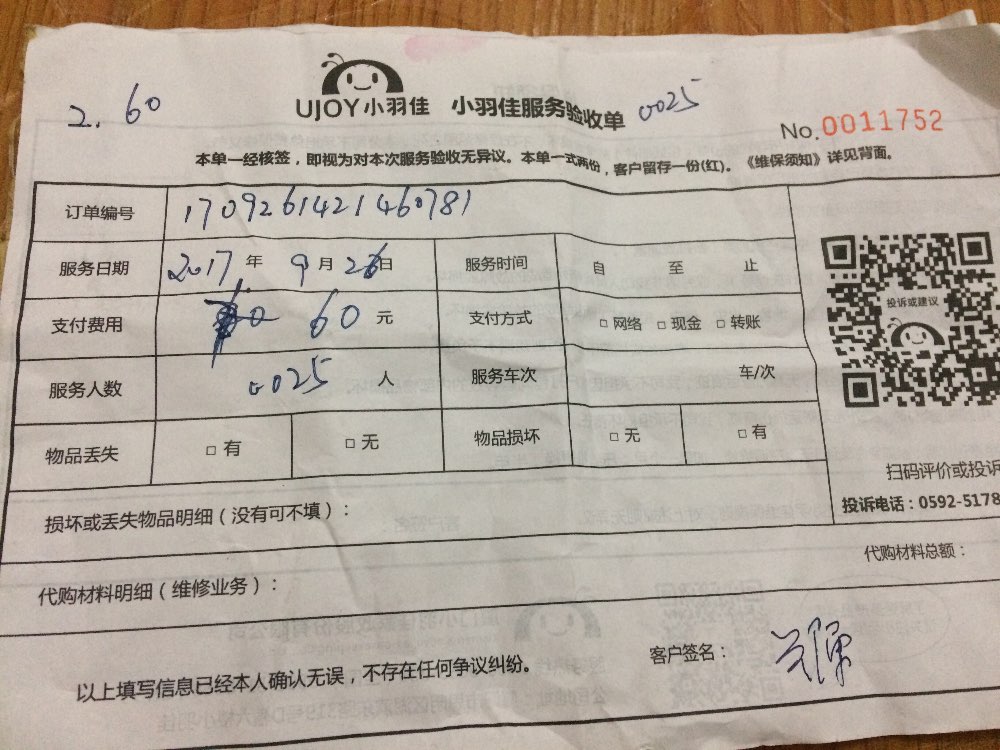 2. 60
UJOY小羽佳 小羽佳服务验收单 0025
No.0011752
本单一经核签，即视为对本次服务验收无异议。本单一式两份，客户留存一份(红)。《维保须知》详见背面。
订单编号 1709261421460781
服务日期 2017年9月26日 服务时间 自 至 止
支付费用 60元 支付方式 □网络 □现金 □转账
投诉或建议
服务人数 0025 人 服务车次 车/次
物品丢失 □有 □无 物品损坏 □无 □有
扫码评价或投诉
投诉电话：0592-5178
损坏或丢失物品明细（没有可不填）：
代购材料总额：
代购材料明细（维修业务）：
客户签名：
以上填写信息已经本人确认无误，不存在任何争议纠纷。